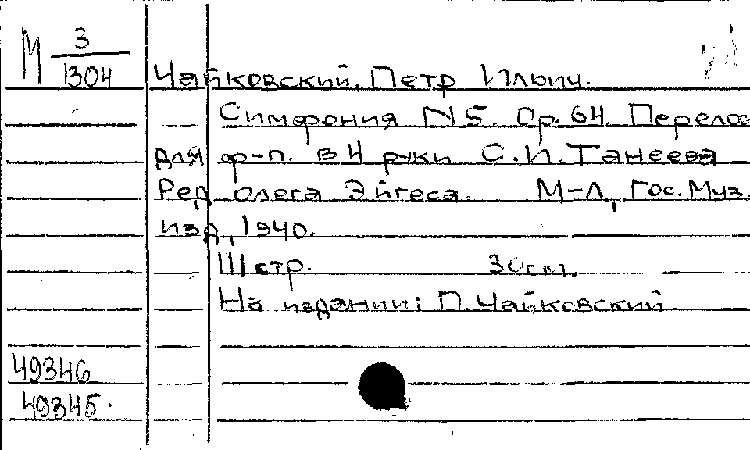 М 3/1304
Чайковский, Петр Ильич.
Симфония N5. Ор. 64. Перелож
для ф-п. в 4 руки С.И. Танеева
Ред Олега Эйгеса. М-Л, Гос. Муз.
изд, 1940.
111 стр. 30см.
На издании: П. Чайковский
49346
49345.